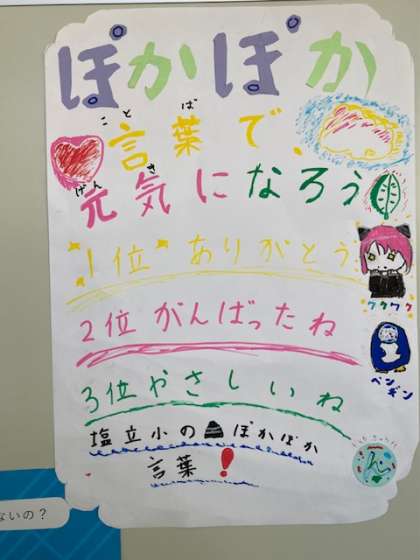 ぽかぽか
ことば
言葉で、
げんき
元気になろう
1位 ありがとう
2位 がんばったね
ワクワク
ペンギン
3位 やさしいね
塩立小のぽかぽか
言葉！
ないの？